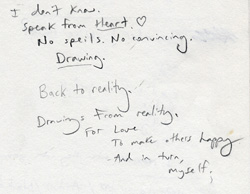 I don't know.
Speak from Heart. ♡
No spells. No convincing.
Drawing.
Back to reality.
Drawings From reality.
For Love
To make others happy
And in turn,
myself.